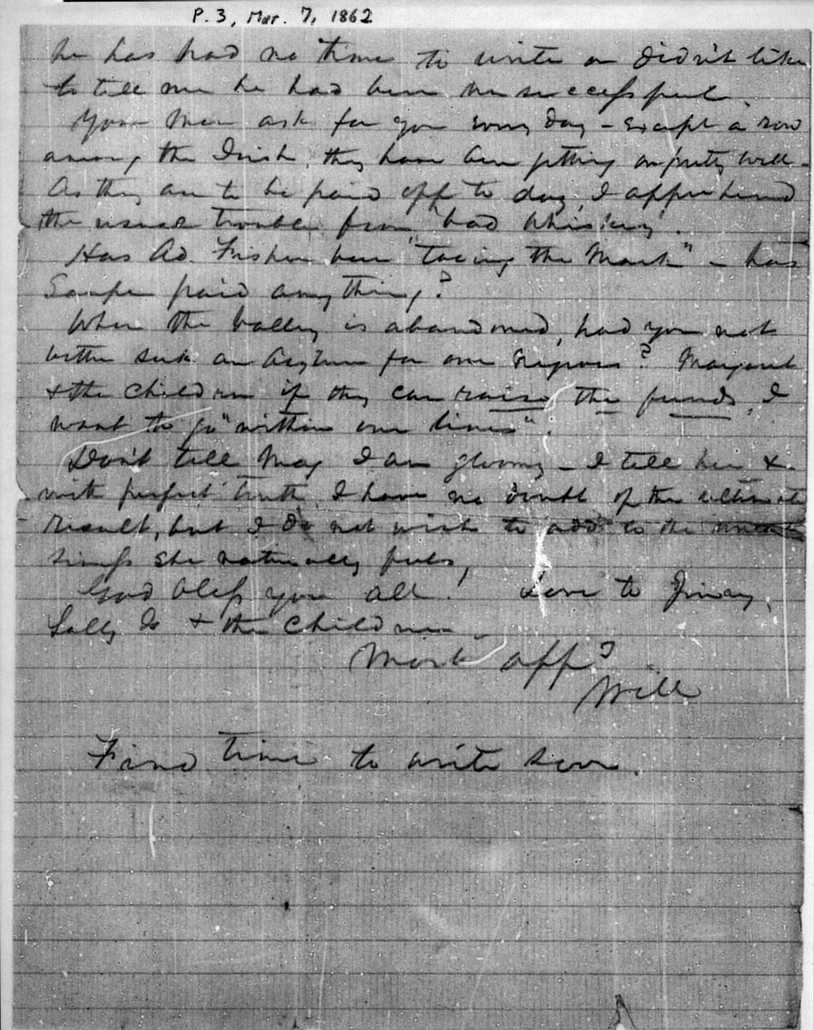 P. 3, Mar. 7, 1862
he has had no time to write or didn't like
to tell me he had been unsuccessful.
Your men ask for you every day - Except a row
among the Irish, they have been getting on pretty well -
As they are to be paid off to day, I apprehend
the usual trouble from "bad whiskey".
Has Ad. Fisher been "toeing the Mark" - has
paid anything?
When the Valley is abandoned, had you not
better seek an Asylum for our Negroes? Margaret
& the children if they can raise the funds, I
want to go "within our lines".
Don't tell May I am gloomy - I tell her &
with perfect truth, I have no doubt of the ultimate
result, but I do not wish to add to the uneasi-
she naturally feels,
God bless you all! Love to Jinny,
Sally & the Children
Most aff?
Will
Find time to write soon.